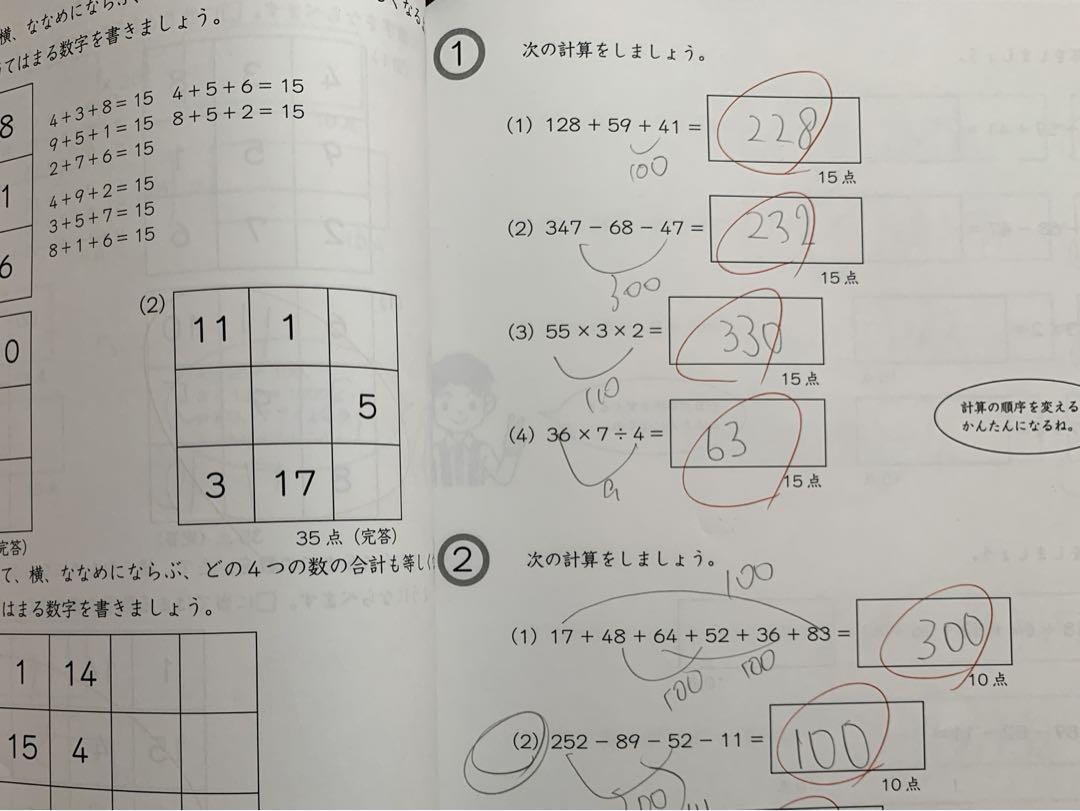 横、ななめにならぶ、
てはまる数字を書きましょう。
8
1
6
4+3+8= 15
9+5+1= 15
2+7+6= 15
4+9+2= 15
3+5+7= 15
8+1+6= 15
4+5+6= 15
8+5+2= 15
0
完答)
(2)
11 1
5
3 17
35点（完答）
て、横、ななめにならぶ、どの4つの数の合計も等しく
はまる数字を書きましょう。
1 14
15 4
1 次の計算をしましょう。
(1) 128 + 59 + 41 = 228
100
15点
(2) 347 − 68 − 47 = 232
300
15点
(3) 55 × 3 × 2 = 330
110
15点
(4) 36 × 7 ÷ 4 = 63
9
15点
計算の順序を変える
かんたんになるね。
2 次の計算をしましょう。
100
(1) 17 + 48 + 64 + 52 + 36 + 83 = 300
100 100
10点
(2) 252 − 89 − 52 − 11 = 100
10点